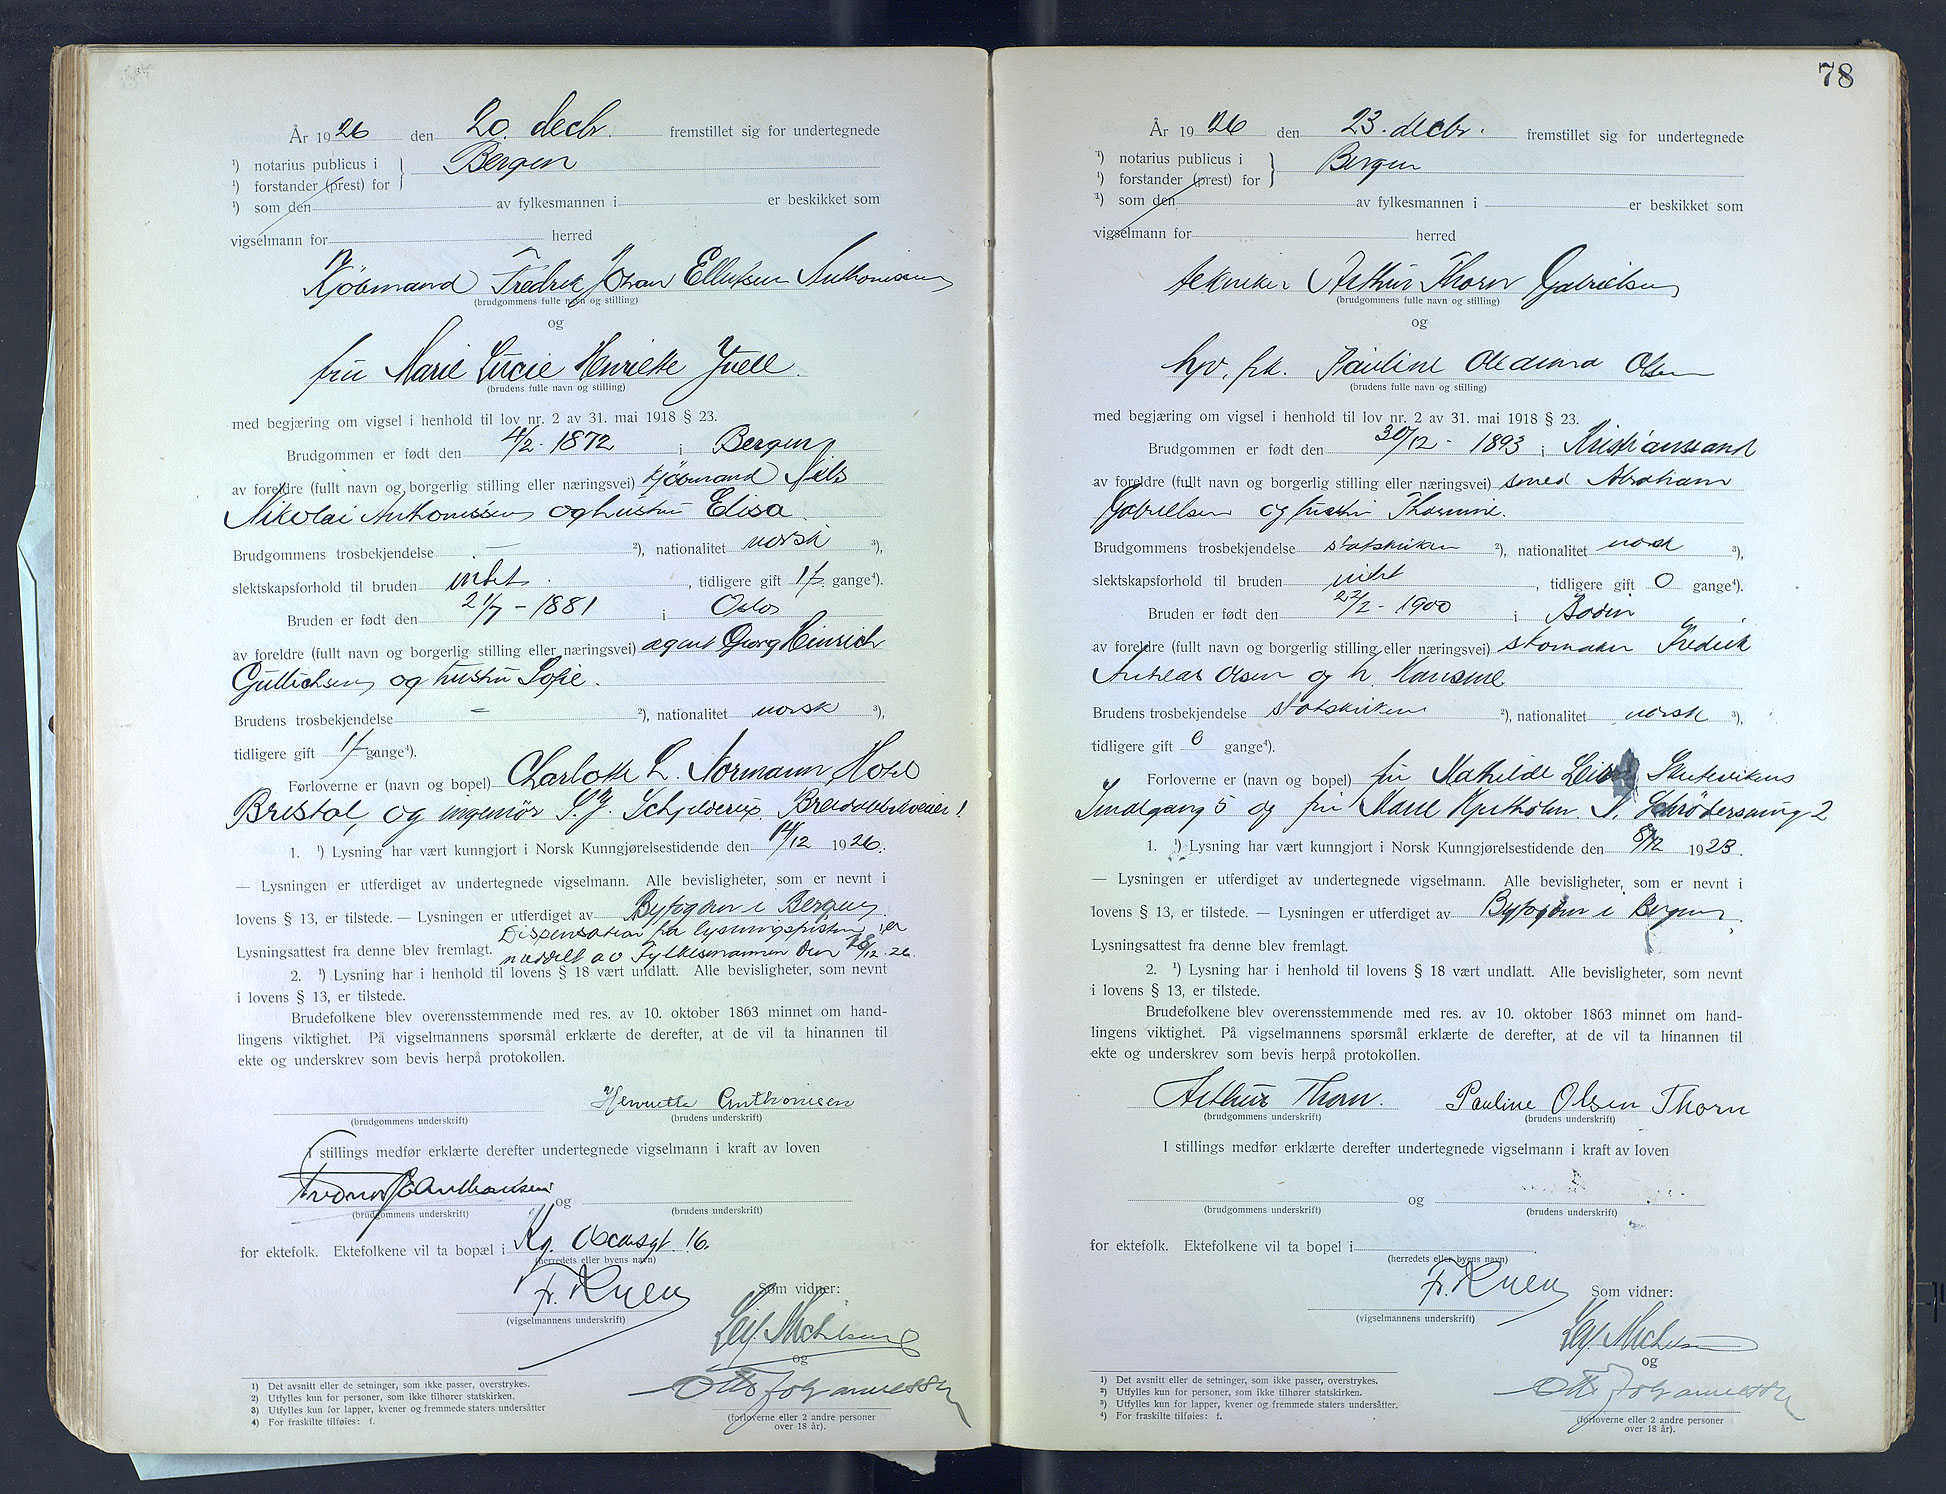 År 1926 den 20. decbr. fremstillet sig for undertegnede
¹) notarius publicus i } Bergen
¹) forstander (prest) for
¹) som den av fylkesmannen i er beskikket som
vigselmann for herred
Kjöbmand Fredrik Johan Ellertsen Anthonissen
(brudgommens fulle navn og stilling)
og
fru Marie Lucie Henriette Juell.
(brudens fulle navn og stilling)
med begjæring om vigsel i henhold til lov nr. 2 av 31. mai 1918 § 23.
Brudgommen er født den 4/2 - 1872 i Bergen
av foreldre (fullt navn og borgerlig stilling eller næringsvei) kjöbmand Nils
Nikolai Anthonissen og hustru Elisa.
Brudgommens trosbekjendelse — ²), nationalitet norsk ³),
slektskapsforhold til bruden intet. , tidligere gift 1 f. gange⁴).
Bruden er født den 21/7 - 1881 i Oslo
av foreldre (fullt navn og borgerlig stilling eller næringsvei) agent Georg Heinrich
Gullichsen og hustru Sofie.
Brudens trosbekjendelse — ²), nationalitet norsk ³),
tidligere gift 1 f gange⁴).
Forloverne er (navn og bopel) Charlotte L. Normann, Hotel
Bristol, og ingeniør Schjelderup,
1. ¹) Lysning har vært kunngjort i Norsk Kunngjørelsestidende den 14/12 1926.
— Lysningen er utferdiget av undertegnede vigselmann. Alle bevisligheter, som er nevnt i
lovens § 13, er tilstede. — Lysningen er utferdiget av Byfogden i Bergen
Dispensation fra lysningsfristen er
Lysningsattest fra denne blev fremlagt. meddelt av Fylkesmannen den 18/12. 26.
2. ¹) Lysning har i henhold til lovens § 18 vært undlatt. Alle bevisligheter, som nevnt
i lovens § 13, er tilstede.
Brudefolkene blev overensstemmende med res. av 10. oktober 1863 minnet om hand-
lingens viktighet. På vigselmannens spørsmål erklærte de derefter, at de vil ta hinannen til
ekte og underskrev som bevis herpå protokollen.
Henriette Anthonisen
(brudgommens underskrift) (brudens underskrift)
I stillings medfør erklærte derefter undertegnede vigselmann i kraft av loven
Anthonisen og
(brudgommens underskrift) (brudens underskrift)
for ektefolk. Ektefolkene vil ta bopæl i Kg. Oscarsgt. 16.
(herredets eller byens navn)
Fr. Knen Som vidner:
(vigselmannens underskrift)
Leif Michelsen
og
Otto Johannessen
(forloverne eller 2 andre personer
over 18 år).
1) Det avsnitt eller de setninger, som ikke passer, overstrykes.
2) Utfylles kun for personer, som ikke tilhører statskirken.
3) Utfylles kun for lapper, kvener og fremmede staters undersåtter
4) For fraskilte tilføies: f.
78
År 1926 den 23. decbr. fremstillet sig for undertegnede
¹) notarius publicus i } Bergen
¹) forstander (prest) for
¹) som den av fylkesmannen i er beskikket som
vigselmann for herred
tekniker Arthur Thorn Gabrielsen
(brudgommens fulle navn og stilling)
og
hjv. frk. Pauline Oledina Olsen
(brudens fulle navn og stilling)
med begjæring om vigsel i henhold til lov nr. 2 av 31. mai 1918 § 23.
Brudgommen er født den 30/12 - 1893 i Kristianssand
av foreldre (fullt navn og borgerlig stilling eller næringsvei) smed Abraham
Gabrielsen og hustru Thomine.
Brudgommens trosbekjendelse statskirken ²), nationalitet norsk ³),
slektskapsforhold til bruden intet , tidligere gift 0 gange⁴).
Bruden er født den 22/2 - 1900 i Bodin
av foreldre (fullt navn og borgerlig stilling eller næringsvei) skomaker Fredrik
Andreas Olsen og h. Hansine
Brudens trosbekjendelse statskirken ²), nationalitet norsk ³),
tidligere gift 0 gange⁴).
Forloverne er (navn og bopel) fru Mathilde Skutevikens
Smalgang 5 og fru Marie Hjertholm, N. Schrödersmug 2
1. ¹) Lysning har vært kunngjort i Norsk Kunngjørelsestidende den 8/12 1923.
— Lysningen er utferdiget av undertegnede vigselmann. Alle bevisligheter, som er nevnt i
lovens § 13, er tilstede. — Lysningen er utferdiget av Byfogden i Bergen.
Lysningsattest fra denne blev fremlagt.
2. ¹) Lysning har i henhold til lovens § 18 vært undlatt. Alle bevisligheter, som nevnt
i lovens § 13, er tilstede.
Brudefolkene blev overensstemmende med res. av 10. oktober 1863 minnet om hand-
lingens viktighet. På vigselmannens spørsmål erklærte de derefter, at de vil ta hinannen til
ekte og underskrev som bevis herpå protokollen.
Arthur Thorn. Pauline Olsen Thorn
(brudgommens underskrift) (brudens underskrift)
I stillings medfør erklærte derefter undertegnede vigselmann i kraft av loven
og
(brudgommens underskrift) (brudens underskrift)
for ektefolk. Ektefolkene vil ta bopel i
(herredets eller byens navn)
Fr. Knen Som vidner:
(vigselmannens underskrift)
Leif Michelsen
og
Otto Johannessen
(forloverne eller 2 andre personer
over 18 år).
¹) Det avsnitt eller de setninger, som ikke passer, overstrykes.
²) Utfylles kun for personer, som ikke tilhører statskirken.
³) Utfylles kun for lapper, kvener og fremmede staters undersåtter.
⁴) For fraskilte tilføies: f.